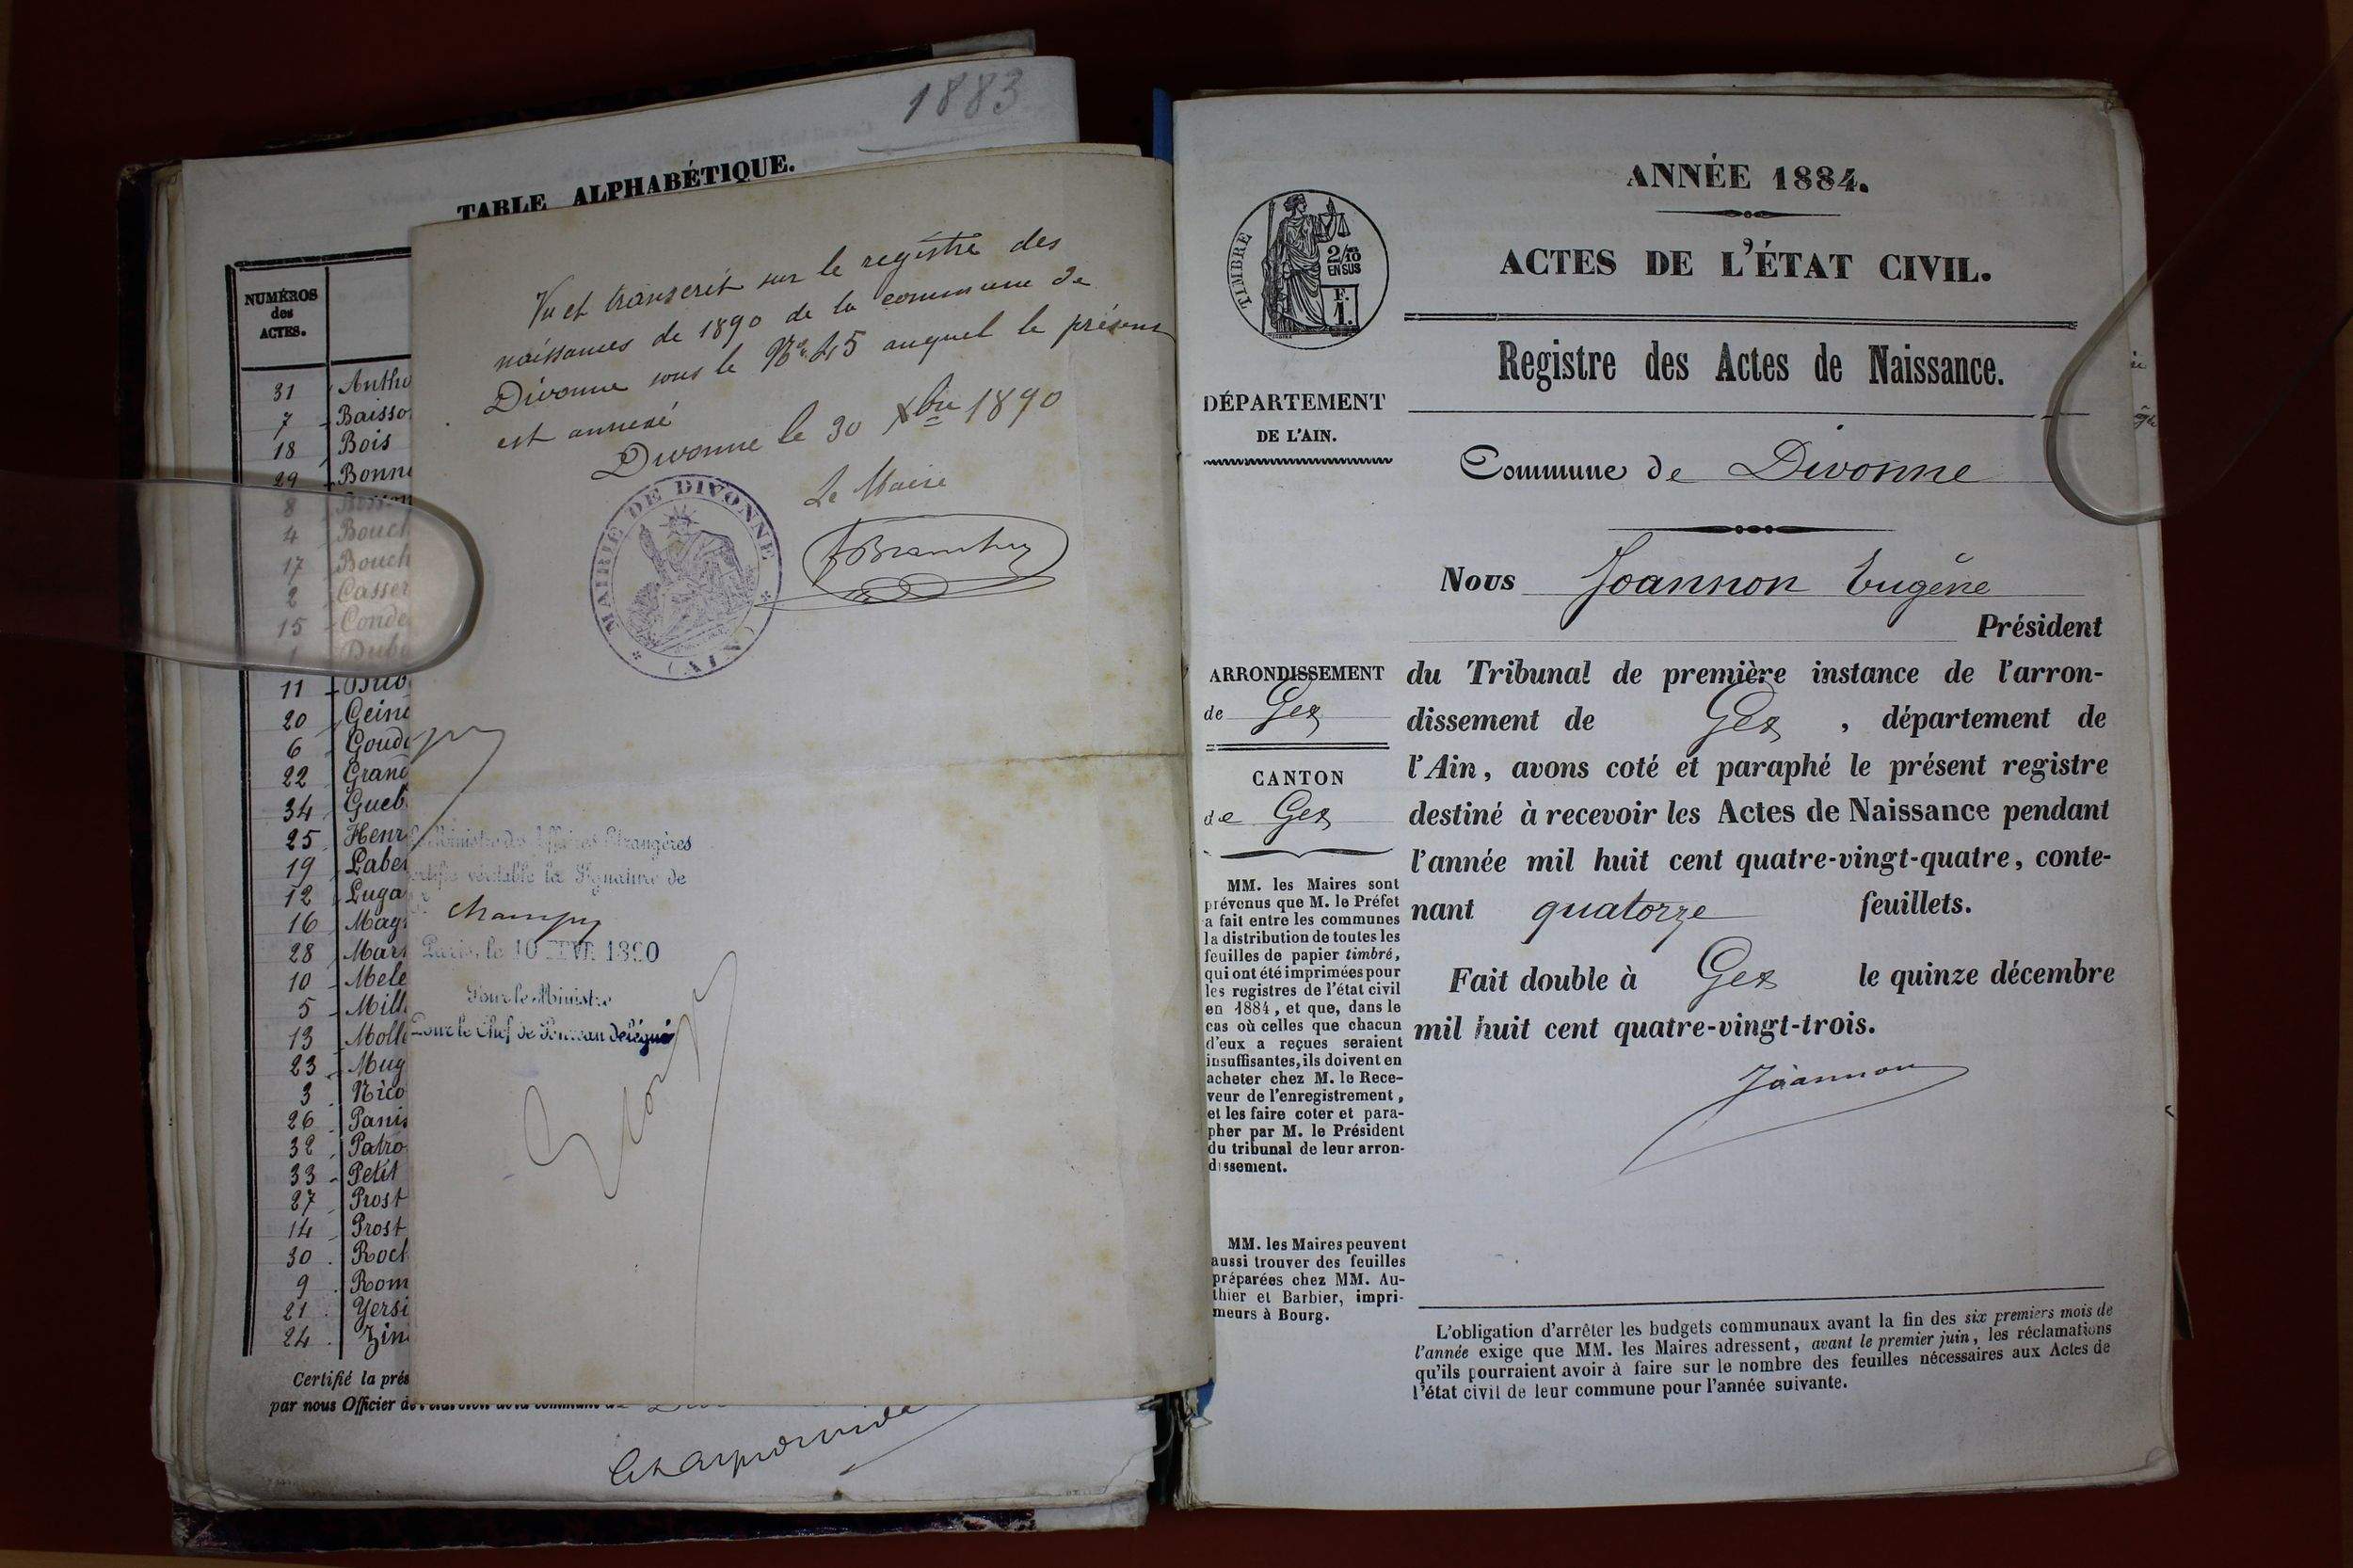 1883
TABLE ALPHABÉTIQUE.
NUMÉROS
des
ACTES.
31 Antho
7 Baisso
18 Bois
29 Bonne
8
4 Bouch
17 Bouch
2 Casser
15 Conde
1 Dubo
11 Dub
20 Geine
6 Goude
22 Grand
34 Gueb
25 Henr
19 Laber
12 Luga
16 Magn
28 Mars
10 Mele
5 Mill
13 Molle
23 Mug
3 Nico
26 Panis
32 Patro
33 Petit
27 Prost
14 Prost
30 Roch
9 Rom
21 Yersi
24 Zin
Certifié la prés
par nous Officier de l'état civil de la commune de
Vu et transcrit sur le registre des
naissances de 1890 de la commune de
Divonne sous le N° 45 auquel le présent
est annexé
Divonne le 30 Xbre 1890
Le Maire
MAIRIE DE DIVONNE
(AIN)
Ministre des Affaires Etrangères
certifie véritable la Signature de
Champy
Paris, le 10 FEVR 1890
Pour le Ministre
Pour le Chef de Bureau Délégué
ANNÉE 1884.
TIMBRE
2/10
EN SUS
F.
1.
ACTES DE L'ÉTAT CIVIL.
Registre des Actes de Naissance.
DÉPARTEMENT
DE L'AIN.
Commune de Divonne
Nous Joannon Eugène
Président
ARRONDISSEMENT
de Gex
CANTON
de Gex
du Tribunal de première instance de l'arron-
dissement de Gex , département de
l'Ain, avons coté et paraphé le présent registre
destiné à recevoir les Actes de Naissance pendant
l'année mil huit cent quatre-vingt-quatre, conte-
nant quatorze feuillets.
Fait double à Gex le quinze décembre
mil huit cent quatre-vingt-trois.
Joannon
MM. les Maires sont
prévenus que M. le Préfet
a fait entre les communes
la distribution de toutes les
feuilles de papier timbré,
qui ont été imprimées pour
les registres de l'état civil
en 1884, et que, dans le
cas où celles que chacun
d'eux a reçues seraient
insuffisantes, ils doivent en
acheter chez M. le Rece-
veur de l'enregistrement,
et les faire coter et para-
pher par M. le Président
du tribunal de leur arron-
dissement.
MM. les Maires peuvent
aussi trouver des feuilles
préparées chez MM. Au-
thier et Barbier, impri-
meurs à Bourg.
L'obligation d'arrêter les budgets communaux avant la fin des six premiers mois de
l'année exige que MM. les Maires adressent, avant le premier juin, les réclamations
qu'ils pourraient avoir à faire sur le nombre des feuilles nécessaires aux Actes de
l'état civil de leur commune pour l'année suivante.